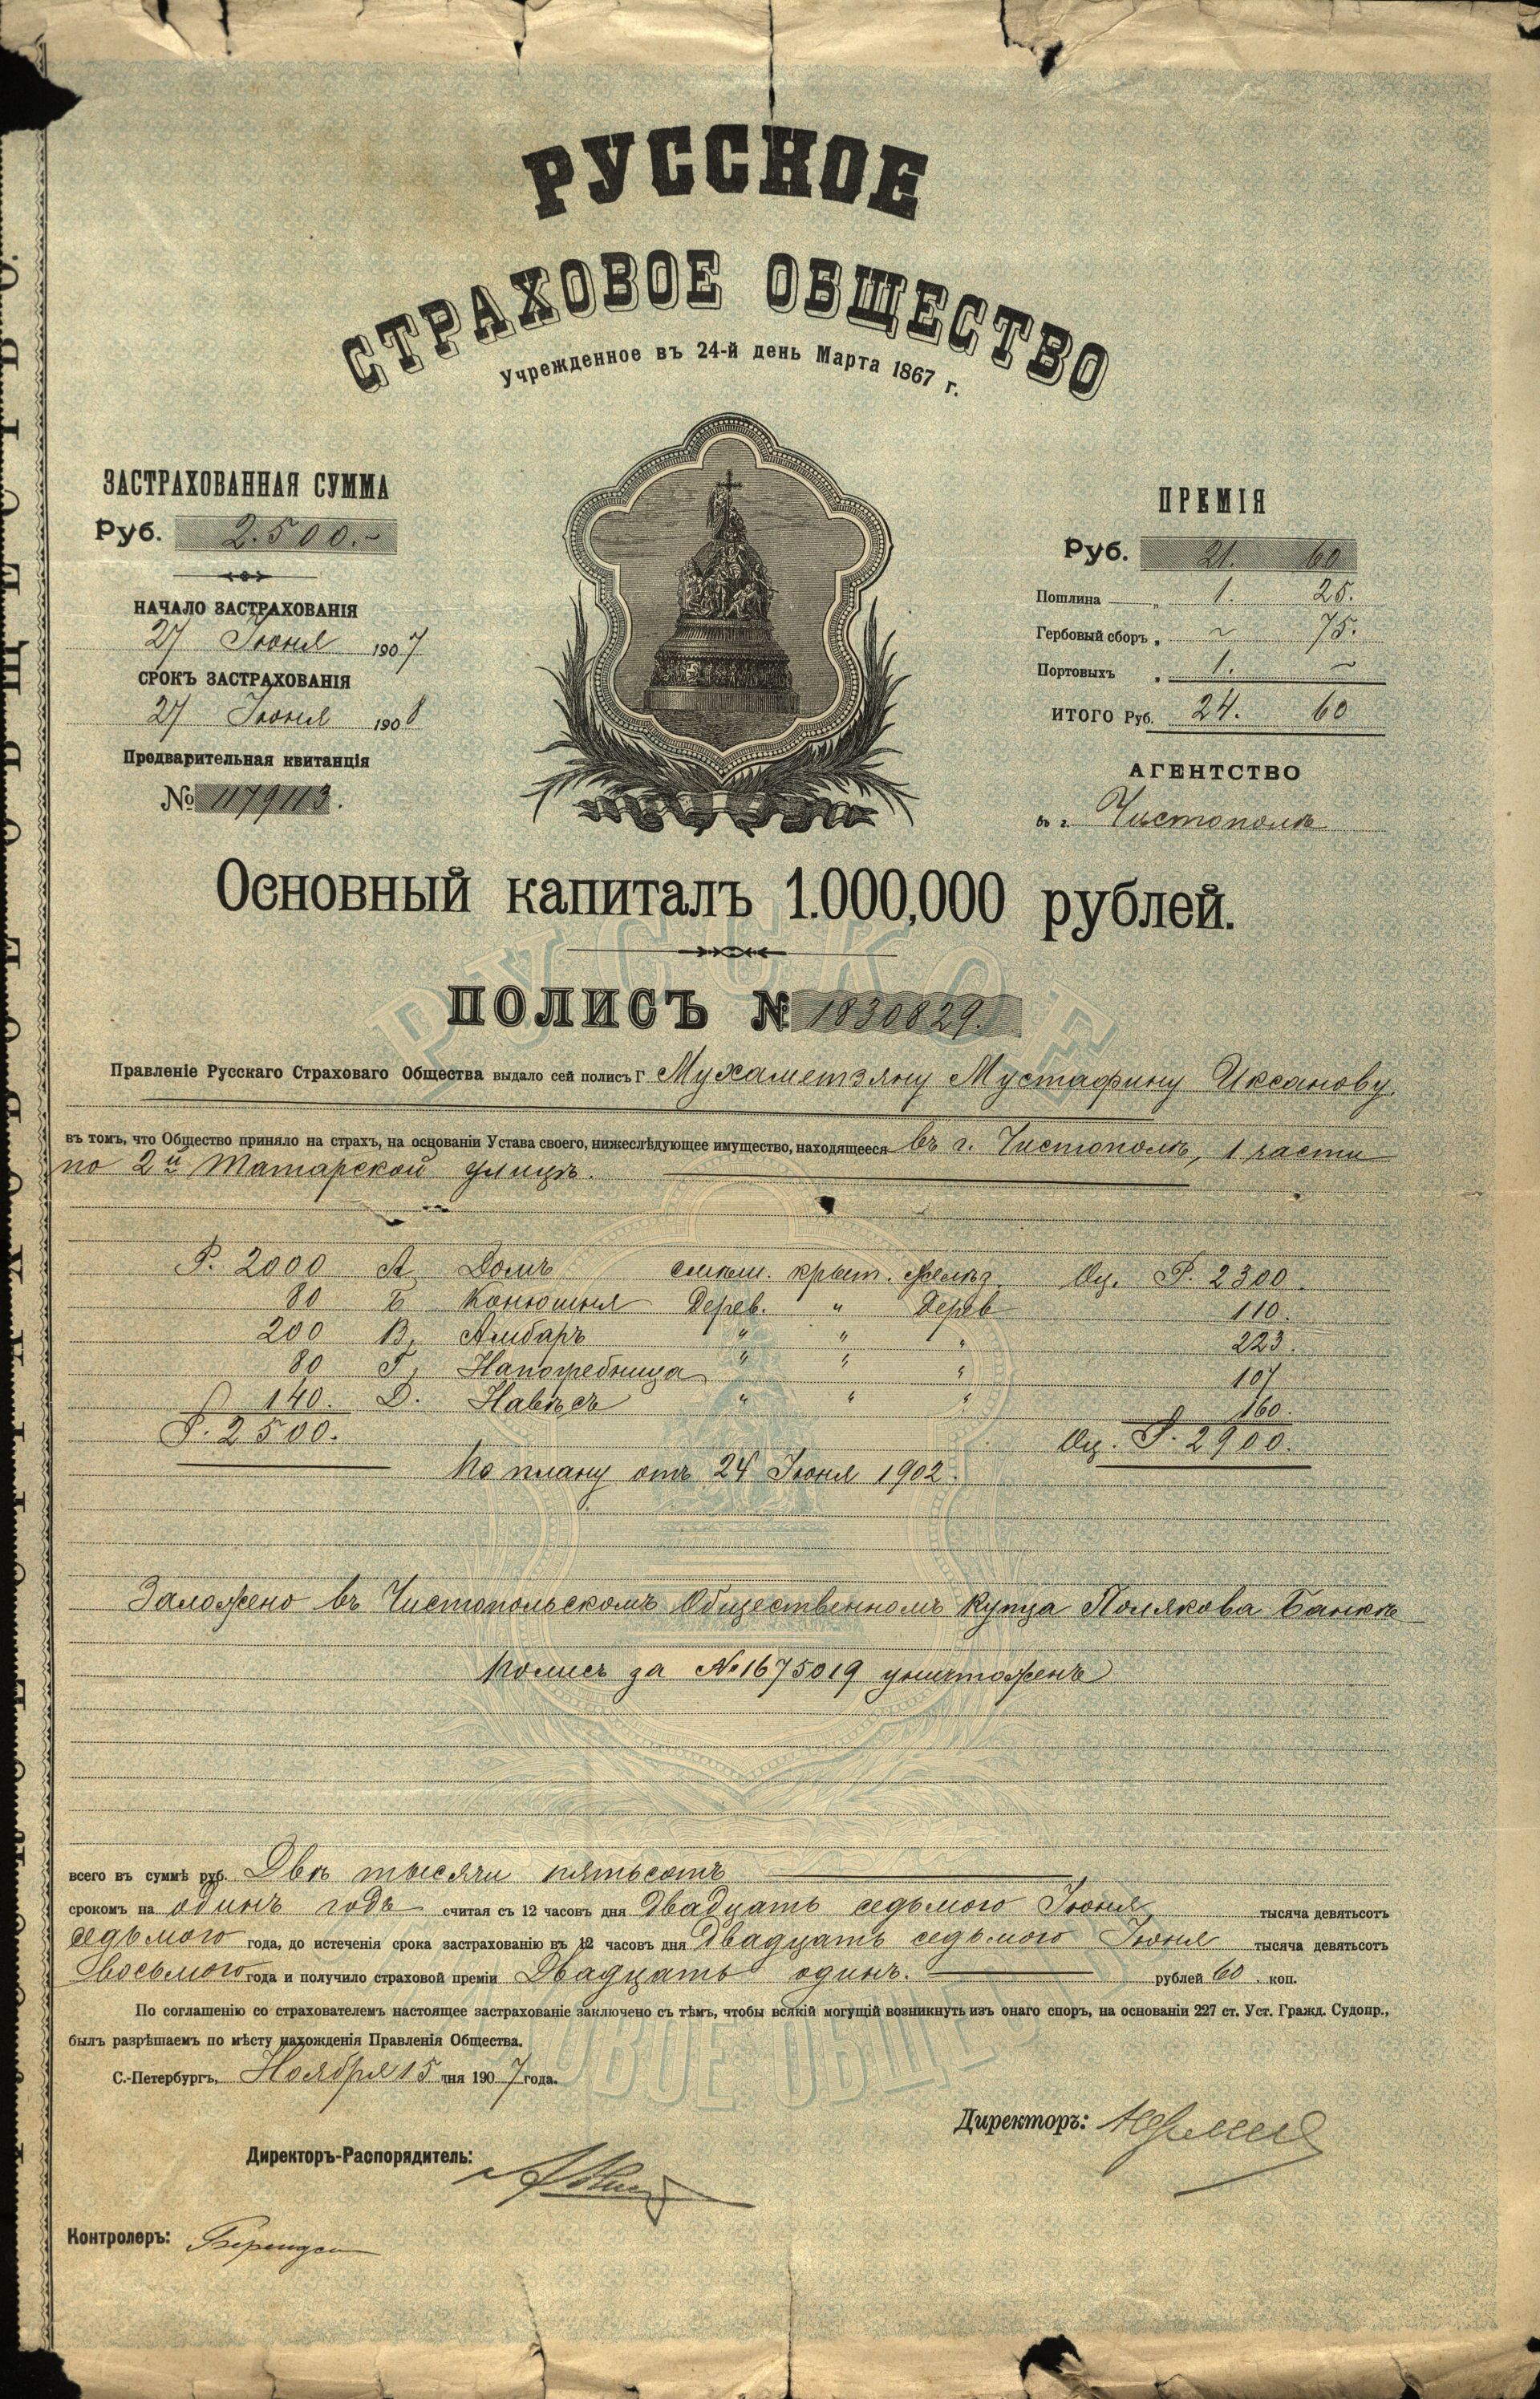 РУССКОЕ
СТРАХОВОЕ ОБЩЕСТВО
Учрежденное въ 24-й день Марта 1867 г.
ЗАСТРАХОВАННАЯ СУММА
Руб. 2.500.~
НАЧАЛО ЗАСТРАХОВАНІЯ
27 Іюня 1907
СРОКЪ ЗАСТРАХОВАНІЯ
27 Іюня 1908
Предварительная квитанція
№ 1179113.
ПРЕМІЯ
Руб. 21. 60
Пошлина „ 1. 25.
Гербовый сборъ „ ~ 75.
Портовыхъ „ 1. ~
ИТОГО Руб. 24. 60
АГЕНТСТВО
въ г. Чистополѣ
Основный капиталъ 1.000,000 рублей.
ПОЛИСЪ № 1830829.
Правленіе Русскаго Страховаго Общества выдало сей полисъ Г Мухаметзяну Мустафину Иксанову.
въ томъ, что Общество приняло на страхъ, на основаніи Устава своего, нижеслѣдующее имущество, находящееся въ г. Чистополѣ, 1 части
по 2й Татарской улицѣ.
Р. 2000 А, Домъ смѣш. крыт. желѣз. Оц. Р. 2300.
80 Б Конюшня Дерев. " Дерев 110.
200 В, Амбаръ " " " 223.
80 Г, Напогребница " " " 107
140. Д. Навѣсъ " " " 160.
Р. 2500. Оц. Р. 2900.
По плану отъ 24 Іюня 1902.
Заложено въ Чистопольскомъ Общественномъ Купца Полякова Банкѣ
Полисъ за №1675019 уничтоженъ
всего въ суммѣ руб. Двѣ тысячи пятьсотъ
срокомъ на одинъ годъ считая съ 12 часовъ дня Двадцать седьмого Іюня тысяча девятьсотъ
седьмого года, до истеченія срока застрахованію въ 12 часовъ дня Двадцать седьмого Іюня тысяча девятьсотъ
восьмого года и получило страховой преміи Двадцать одинъ. рублей 60. коп.
По соглашенію со страхователемъ настоящее застрахованіе заключено съ тѣмъ, чтобы всякій могущій возникнуть изъ онаго споръ, на основаніи 227 ст. Уст. Гражд. Судопр.,
былъ разрѣшаемъ по мѣсту нахожденія Правленія Общества.
С.-Петербургъ, Ноября 15 дня 1907 года.
Директоръ:
Директоръ-Распорядитель:
Контролеръ: